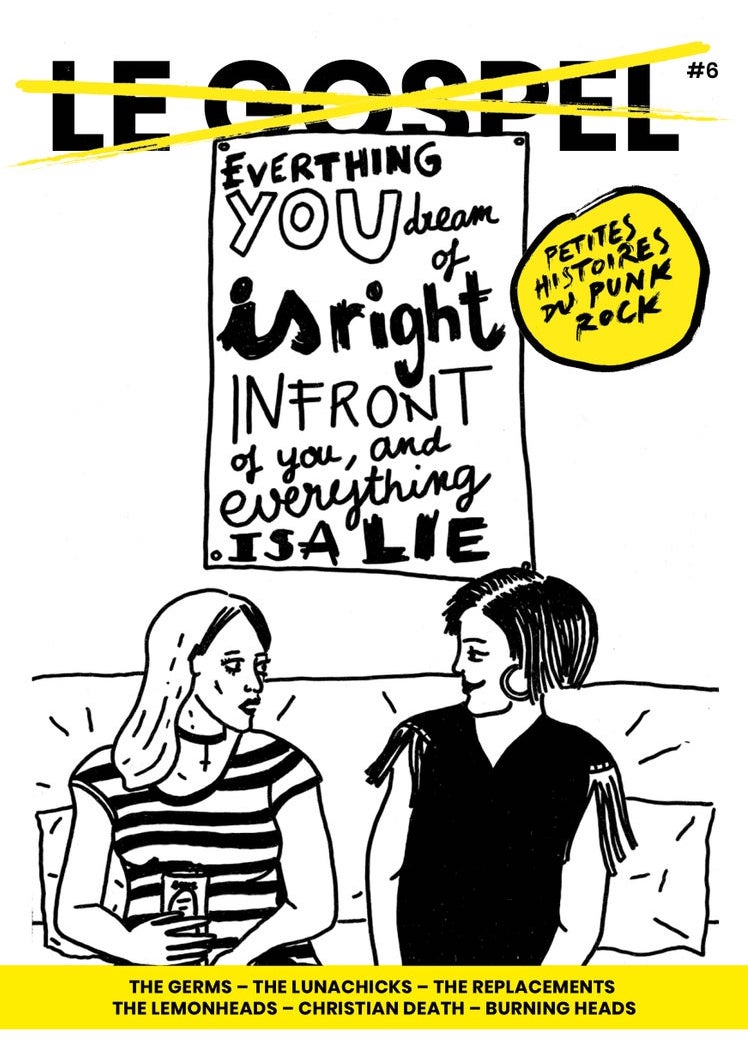 LE GOSPEL
#6
EVERTHING
YOU dream
of
is right
INFRONT
of you, and
everything
IS A LIE
PETITES
HISTOIRES
DU PUNK
ROCK
THE GERMS – THE LUNACHICKS – THE REPLACEMENTS
THE LEMONHEADS – CHRISTIAN DEATH – BURNING HEADS